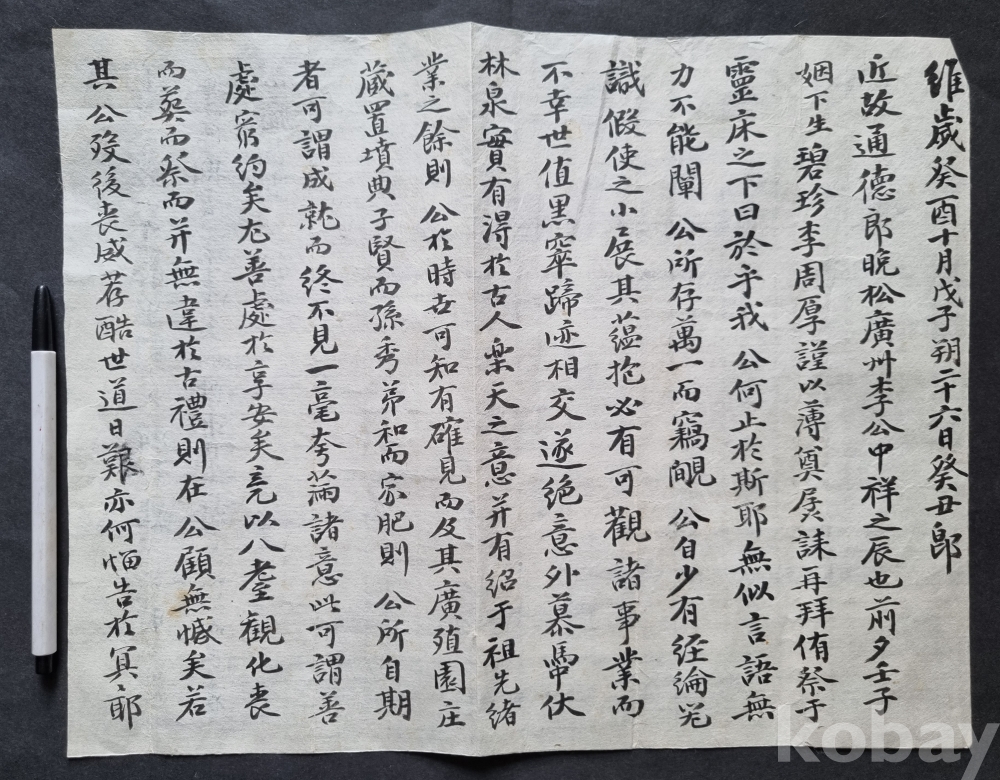 維歲癸酉十月戊子朔二十六日癸丑卽
近故通德郎晩松廣州李公中祥之辰也前夕壬子
姻下生碧珍李周厚謹以薄奠屠誄再拜侑祭于
靈床之下曰於乎我 公何止於斯耶無似言語無
力不能闡 公所存萬一而竊覸 公自少有經綸
識假使之小展其蘊抱必有可觀諸事業而
不幸世值黑窣蹄迹相交遂絕意外慕馬帣伏
林泉實有得於古人樂天之意幷有紹于祖先緖
業之餘則 公於時世可知有確見而及其廣殖園庄
藏置墳典子賢而孫秀弟和而家肥則 公所自期
者可謂成就而終不見一毫夸滿諸意此可謂善
處窮約矣尤善處於享安矣竟以八耋觀化喪
而葬而祭而幷無違於古禮則在 公顧無憾矣若
其 公歿後喪威荐酷世道日艱亦何愊告於冥冥耶
kobay